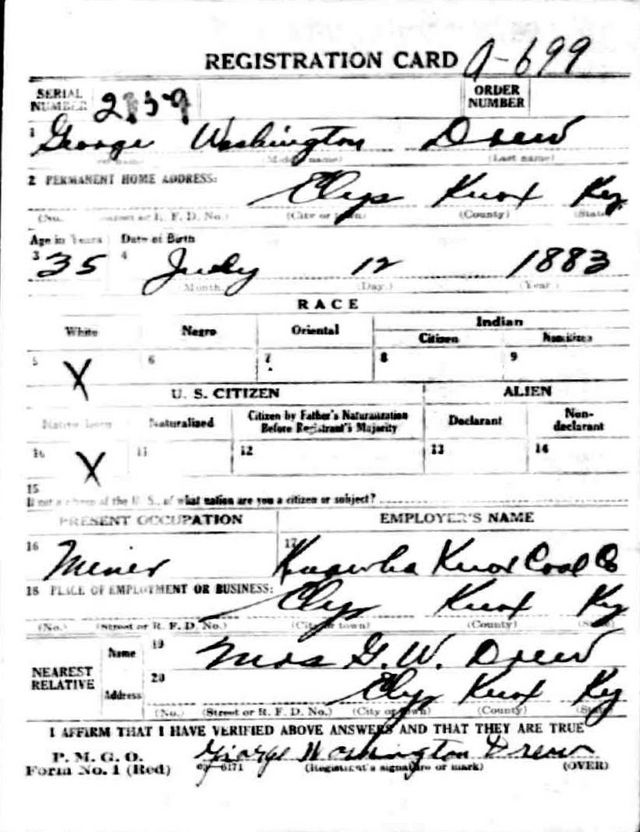 REGISTRATION CARD A-699
SERIAL NUMBER 2859 ORDER NUMBER
1 George Washington Drew
(Middle name) (Last name)
2 PERMANENT HOME ADDRESS:
Elys Knox Ky
(No. (Street or R. F. D. No.) (City or town) (County) (State)
Age in Years Date of Birth
3 35 4 July 12 1883
(Month.) (Day.) (Year.)
RACE
White Negro Oriental Indian
Citizen Noncitizen
5 X 6 7 8 9
U. S. CITIZEN ALIEN
Native Born Naturalized Citizen by Father's Naturalization Before Registrant's Majority Declarant Non-declarant
10 X 11 12 13 14
15
If not a citizen of the U. S., of what nation are you a citizen or subject?
PRESENT OCCUPATION EMPLOYER'S NAME
16 Miner 17 Knox Coal Co
18 PLACE OF EMPLOYMENT OR BUSINESS:
Elys Knox Ky
(No.) (Street or R. F. D. No.) (City or town) (County) (State)
NEAREST RELATIVE Name 19 Mrs G. W. Drew
Address 20 Elys Knox Ky
(No.) (Street or R. F. D. No.) (City or town) (County) (State)
I AFFIRM THAT I HAVE VERIFIED ABOVE ANSWERS AND THAT THEY ARE TRUE
P. M. G. O.
Form No. 1 (Red) George Washington Drew
6171 (Registrant's signature or mark) (OVER)